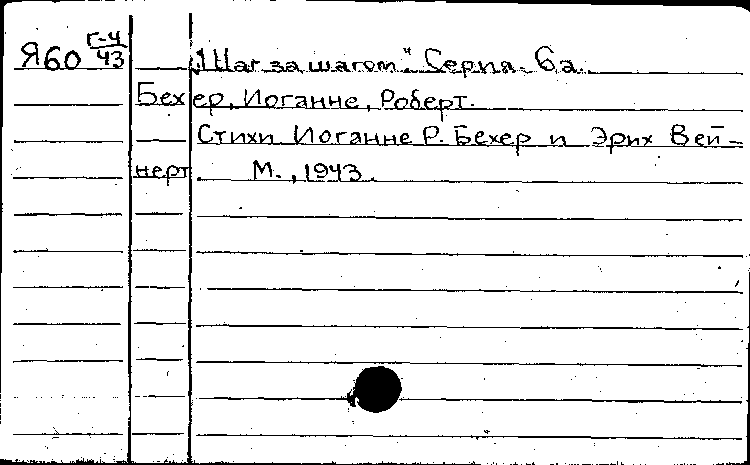 Я60 Г-4/43 „Шаг за шагом." Серия. 6а.
Бехер, Иоганне, Роберт.
Стихи Иоганне Р. Бехер и Эрих Вей-
нерт. М., 1943.